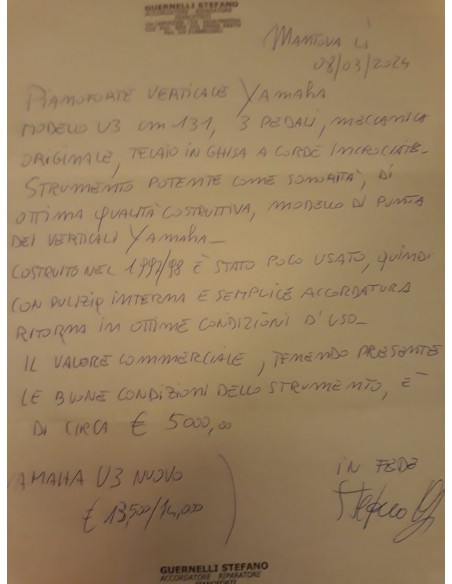 GUERNELLI STEFANO
ACCORDATORE RIPARATORE
MANTOVA LÌ
08/03/2024
PIANOFORTE VERTICALE YAMAHA
MODELLO U3 cm 131, 3 PEDALI, MECCANICA
ORIGINALE, TELAIO IN GHISA A CORDE INCROCIATE-
STRUMENTO POTENTE COME SONORITÀ, DI
OTTIMA QUALITÀ COSTRUTTIVA, MODELLO DI PUNTA
DEI VERTICALI YAMAHA-
COSTRUITO NEL 1997/98 È STATO POCO USATO, QUINDI
CON PULIZIA INTERNA E SEMPLICE ACCORDATURA
RITORNA IN OTTIME CONDIZIONI D'USO-
IL VALORE COMMERCIALE, TENENDO PRESENTE
LE BUONE CONDIZIONI DELLO STRUMENTO, È
DI CIRCA € 5000,00
YAMAHA U3 NUOVO
€ 13,500/14,000
IN FEDE
Stefano
GUERNELLI STEFANO
ACCORDATORE RIPARATORE
PIANOFORTI